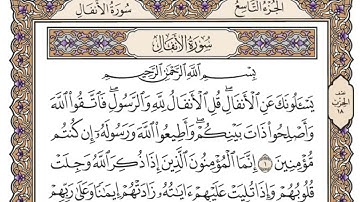 الجزء التاسع
سورة الأنفال
سُورَةُ الأَنفَالِ
بِسْمِ ٱللَّهِ ٱلرَّحْمَٰنِ ٱلرَّحِيمِ
يَسْـَٔلُونَكَ عَنِ ٱلْأَنفَالِۖ قُلِ ٱلْأَنفَالُ لِلَّهِ وَٱلرَّسُولِۖ فَٱتَّقُوا۟ ٱللَّهَ
وَأَصْلِحُوا۟ ذَاتَ بَيْنِكُمْۖ وَأَطِيعُوا۟ ٱللَّهَ وَرَسُولَهُۥٓ إِن كُنتُم
مُّؤْمِنِينَ ۝١ إِنَّمَا ٱلْمُؤْمِنُونَ ٱلَّذِينَ إِذَا ذُكِرَ ٱللَّهُ وَجِلَتْ
قُلُوبُهُمْ وَإِذَا تُلِيَتْ عَلَيْهِمْ ءَايَٰتُهُۥ زَادَتْهُمْ إِيمَٰنًا وَعَلَىٰ رَبِّهِمْ
الحزب
١٨